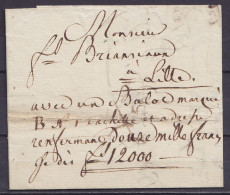 Monsieur
à Lille
avec un Balot marqué
B A 1 cacheté et adressé
renfermant Douze mille francs
12000